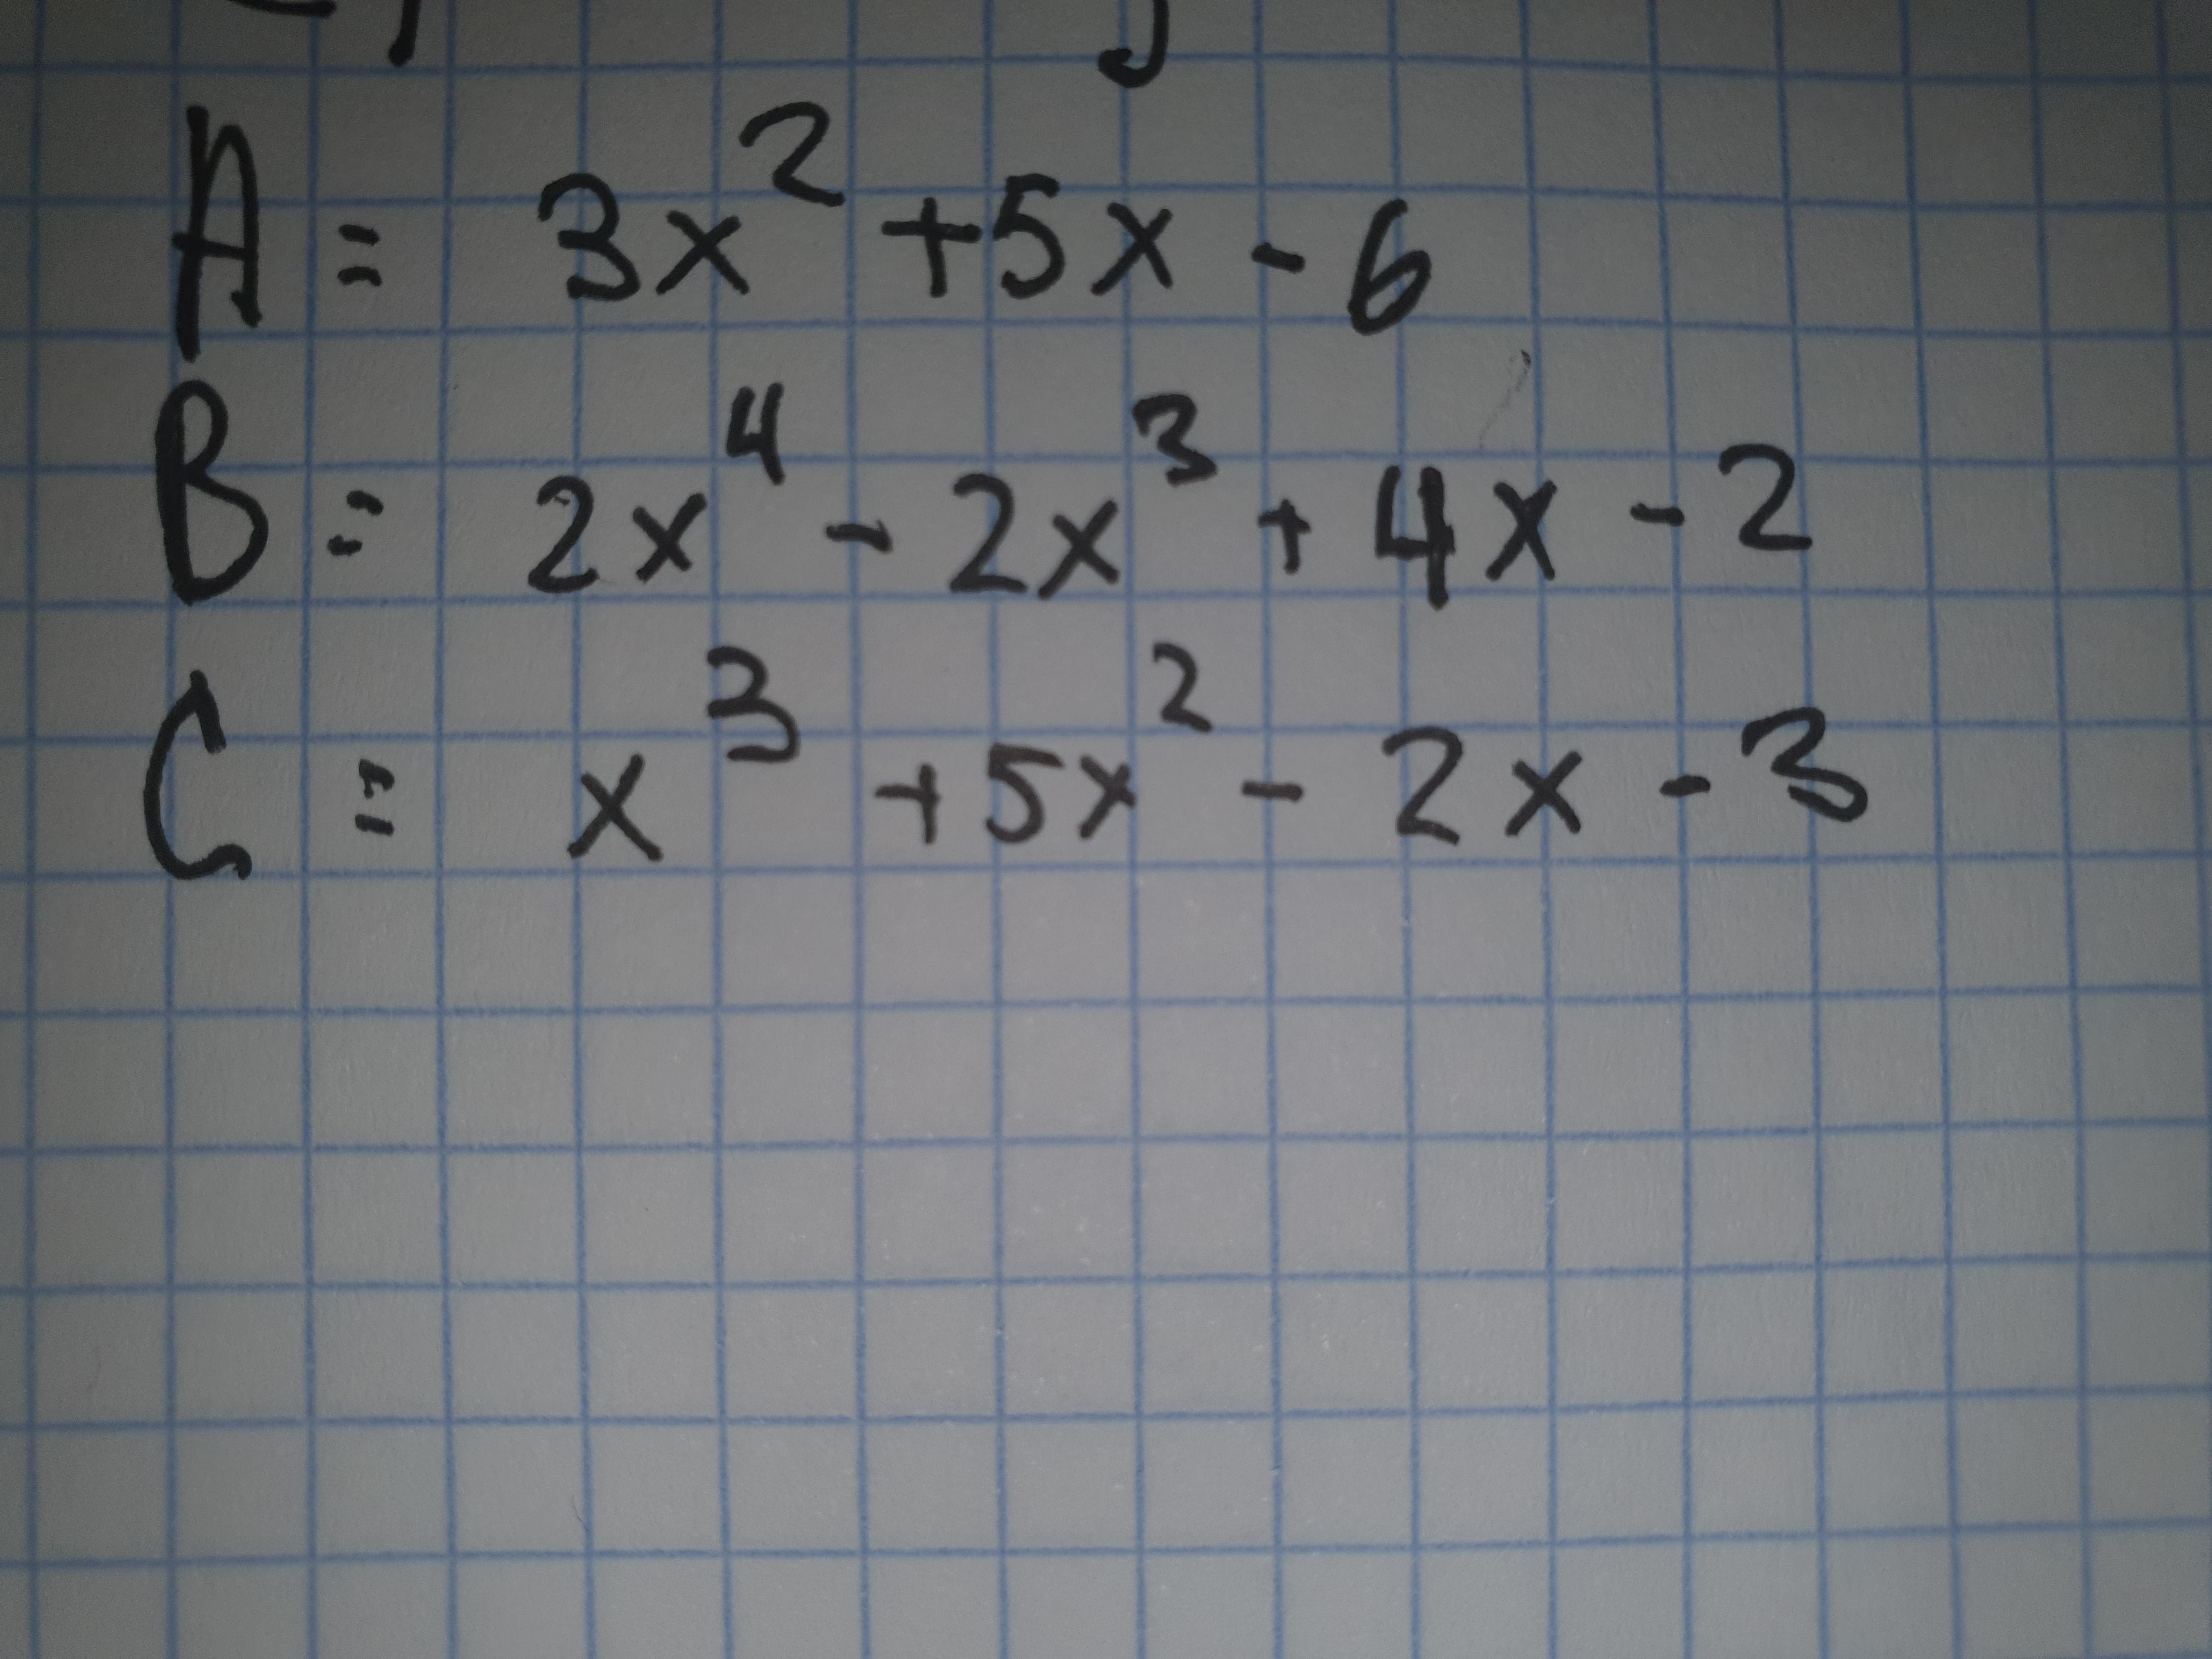 A = 3x² + 5x - 6
B = 2x⁴ - 2x³ + 4x - 2
C = x³ + 5x² - 2x - 3